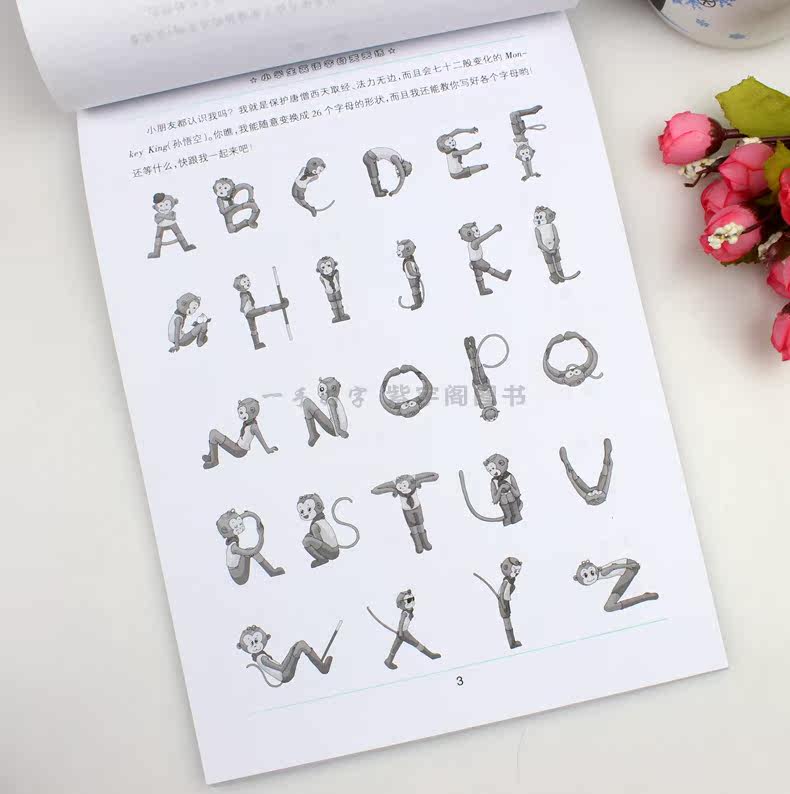 ☆小学生英语字母美美练☆
小朋友都认识我吗？我就是保护唐僧西天取经、法力无边,而且会七十二般变化的 Mon-
key King(孙悟空)。你瞧,我能随意变换成 26 个字母的形状,而且我还能教你写好各个字母哟!
还等什么,快跟我一起来吧!
A B C D E F
G H I J K L
M N O P Q
R S T U V
W X Y Z
3